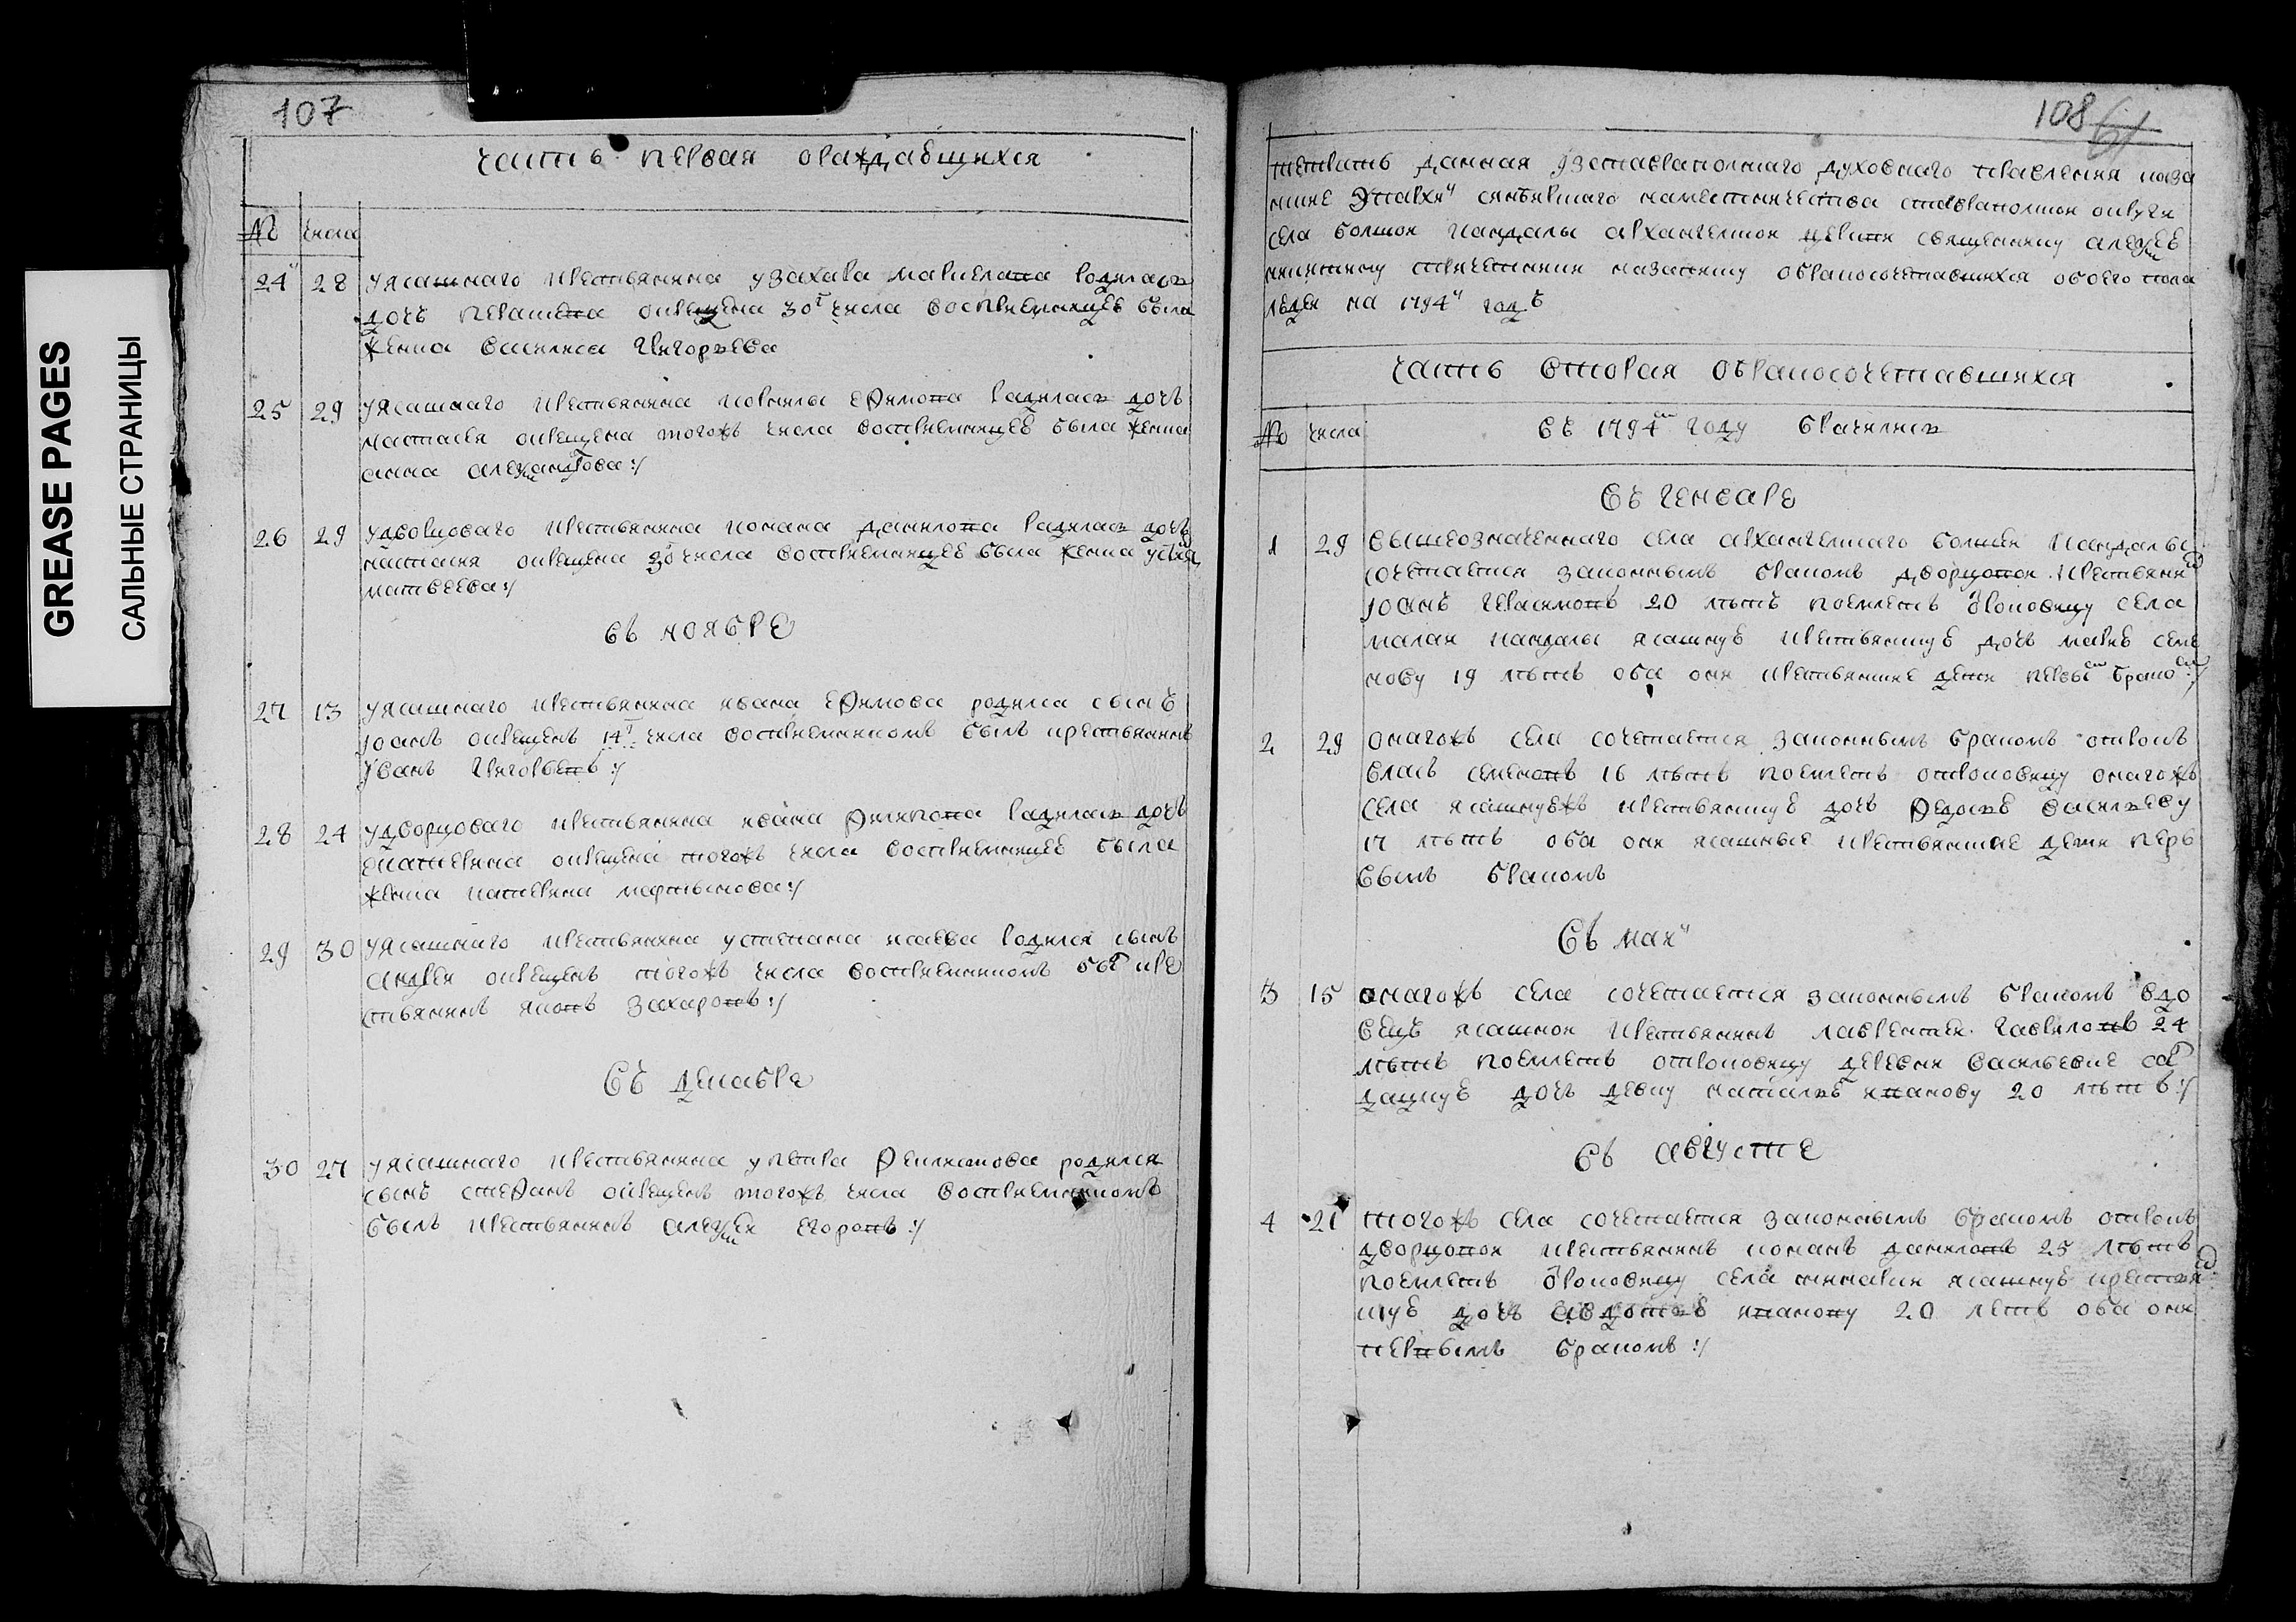 GREASE PAGES
САЛЬНЫЕ СТРАНИЦЫ
107
часть первая ораждавшихся
№ числа
24 28 уясашнаго крестьянина узахара маркелава родилась
дочь крещена 30г числа восприемницеѣ была
женка василиса григорьева
25 29 уясашнаго крестьянина корнилы ефимова радилась дочь
настасия окрещена тогожъ числа восприемницеѣ была женка
анна александрова:/
26 29 удворцоваго крестьянина конана данилова радилась дочь
настасия окрещена 30 числа восприемницеѣ была женка
матвеева:/
въ ноябре
27 13 уясашнаго крестьянина ивана ефимова родился сынъ
иоанъ окрещенъ 14г числа восприемникомъ былъ крестьянинъ
иванъ григорьевъ:/
28 24 удворцоваго крестьянина ивана филипова радилась дочь
екатерина окрещена тогожъ числа восприемницеѣ была
женка катерина мартынова:/
29 30 уясашнаго крестьянина устепана исаева родился сынъ
андрей окрещенъ тогожъ числа восприемникомъ былъ кре
стьянинъ яковъ захаровъ:/
въ декабре
30 27 уясашнаго крестьянина упетра филипова родился
сынъ стефанъ окрещенъ тогожъ числа восприемникомъ
былъ крестьянинъ алексей егоровъ:/
108 61
тетрать данная изставрапольскаго духовнаго правления каза
нские епархии синбирскаго наместничества ставрапольской округи
села большой кандалы архангельской церкви священнику алексею
никитину причетником назаписку обракосочетавшихся обоего пола
людей на 1794й годъ
часть вторая обракосочетавшихся
№ числа въ 1794м году брачились
въ генваре
1 29 вышеозначеннаго села архангельскаго большей кандалы
сочетается законнымъ бракомъ дворцовой крестьянин
иоанъ герасимовъ 20 лѣтъ поемлетъ отроковицу села
малай кандалы ясашнуѣ крестьянскуѣ дочь марьѣ семе
нову 19 лѣтъ оба они крестьянские дети первым браком:/
2 29 онагожъ села сочетается законнымъ бракомъ отрокъ
власъ семеновъ 16 лѣтъ поемлетъ отроковицу онагожъ
села ясашнуѣжъ крестьянскуѣ дочь федосьѣ васильеву
17 лѣтъ оба они ясашные крестьянские дети перь
вымъ бракомъ
въ маии
3 15 онагожъ села сочетается законнымъ бракомъ вдо
вецъ ясашной крестьянинъ лаврентей гавриловъ 24
лѣтъ поемлетъ отроковицу деревни васильевке сол
дацкуѣ дочь девку натальѣ иванову 20 лѣтъ:/
въ августе
4 21 тогожъ села сочетается законнымъ бракомъ отрокъ
дворцовой крестьянинъ конанъ даниловъ 25 лѣтъ
поемлетъ отроковицу села ясашнуѣ крестьян
скуѣ дочь авдотьѣ иванову 20 летъ оба они
первымъ бракомъ:/